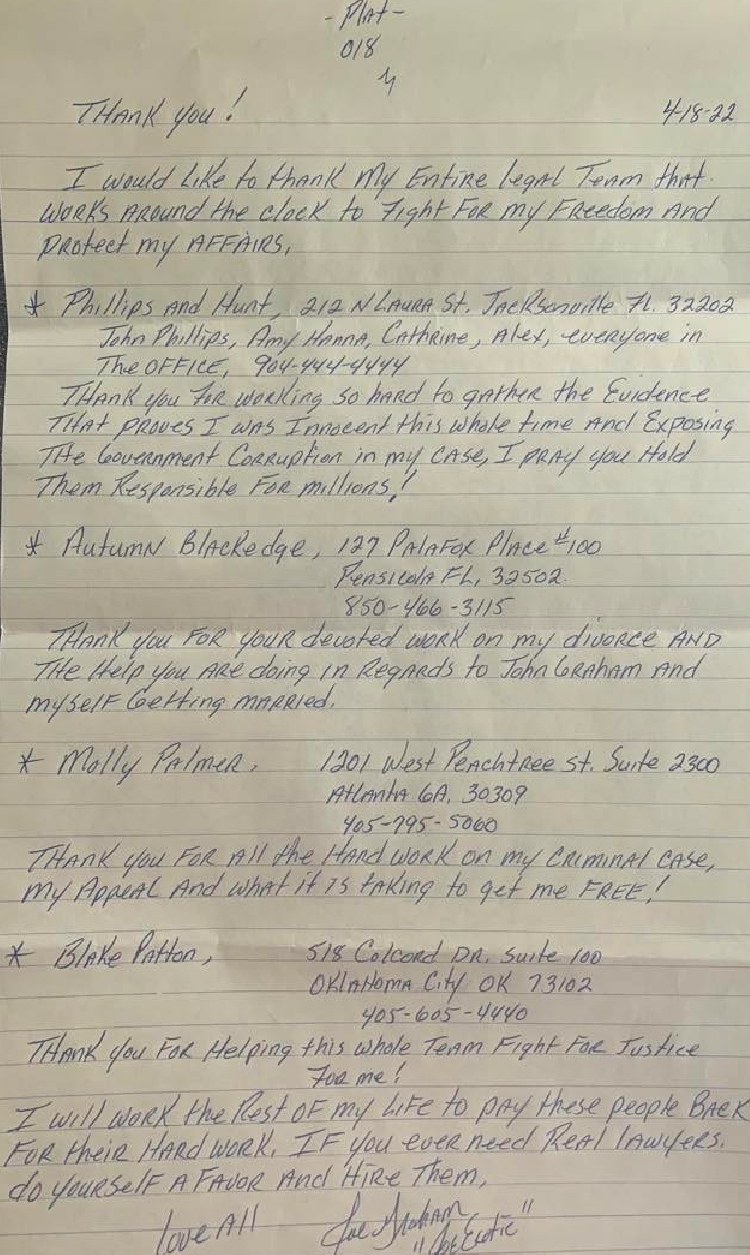 - Plat -
018
4
Thank you!
4-18-22
I would like to thank my Entire legal Team that
works around the clock to Fight For my Freedom And
protect my AFFAIRS,
* Phillips and Hunt, 212 N Laura St. Jacksonville FL. 32202
John Phillips, Amy Hanna, Cathrine, Alex, everyone in
The OFFICE, 904-444-4444
Thank you For working so hard to gather the Evidence
That proves I was Innocent this whole time And Exposing
The Government Corruption in my case, I pray you Hold
Them Responsible For millions!
* Autumn Blackedge, 127 Palafox Place #100
Pensicola FL, 32502
850-466-3115
Thank you FOR YOUR devoted work on my divorce AND
The Help you Are doing in Regards to John Graham And
myself Getting married.
* Molly Palmer, 1201 West Peachtree St. Suite 2300
Atlanta GA, 30309
405-795-5060
Thank you For All the Hard work on my Criminal case,
my Appeal And what it is taking to get me FREE!
* Blake Patton, 518 Colcord DR. Suite 100
Oklahoma City OK 73102
405-605-4440
Thank you For Helping this whole Team Fight For Justice
For me!
I will work the Rest OF my Life to pay these people Back
For their Hard work. IF you ever need Real lawyers.
do yourself A Favor And Hire Them,
love All Joe Graham
"Joe Exotic"